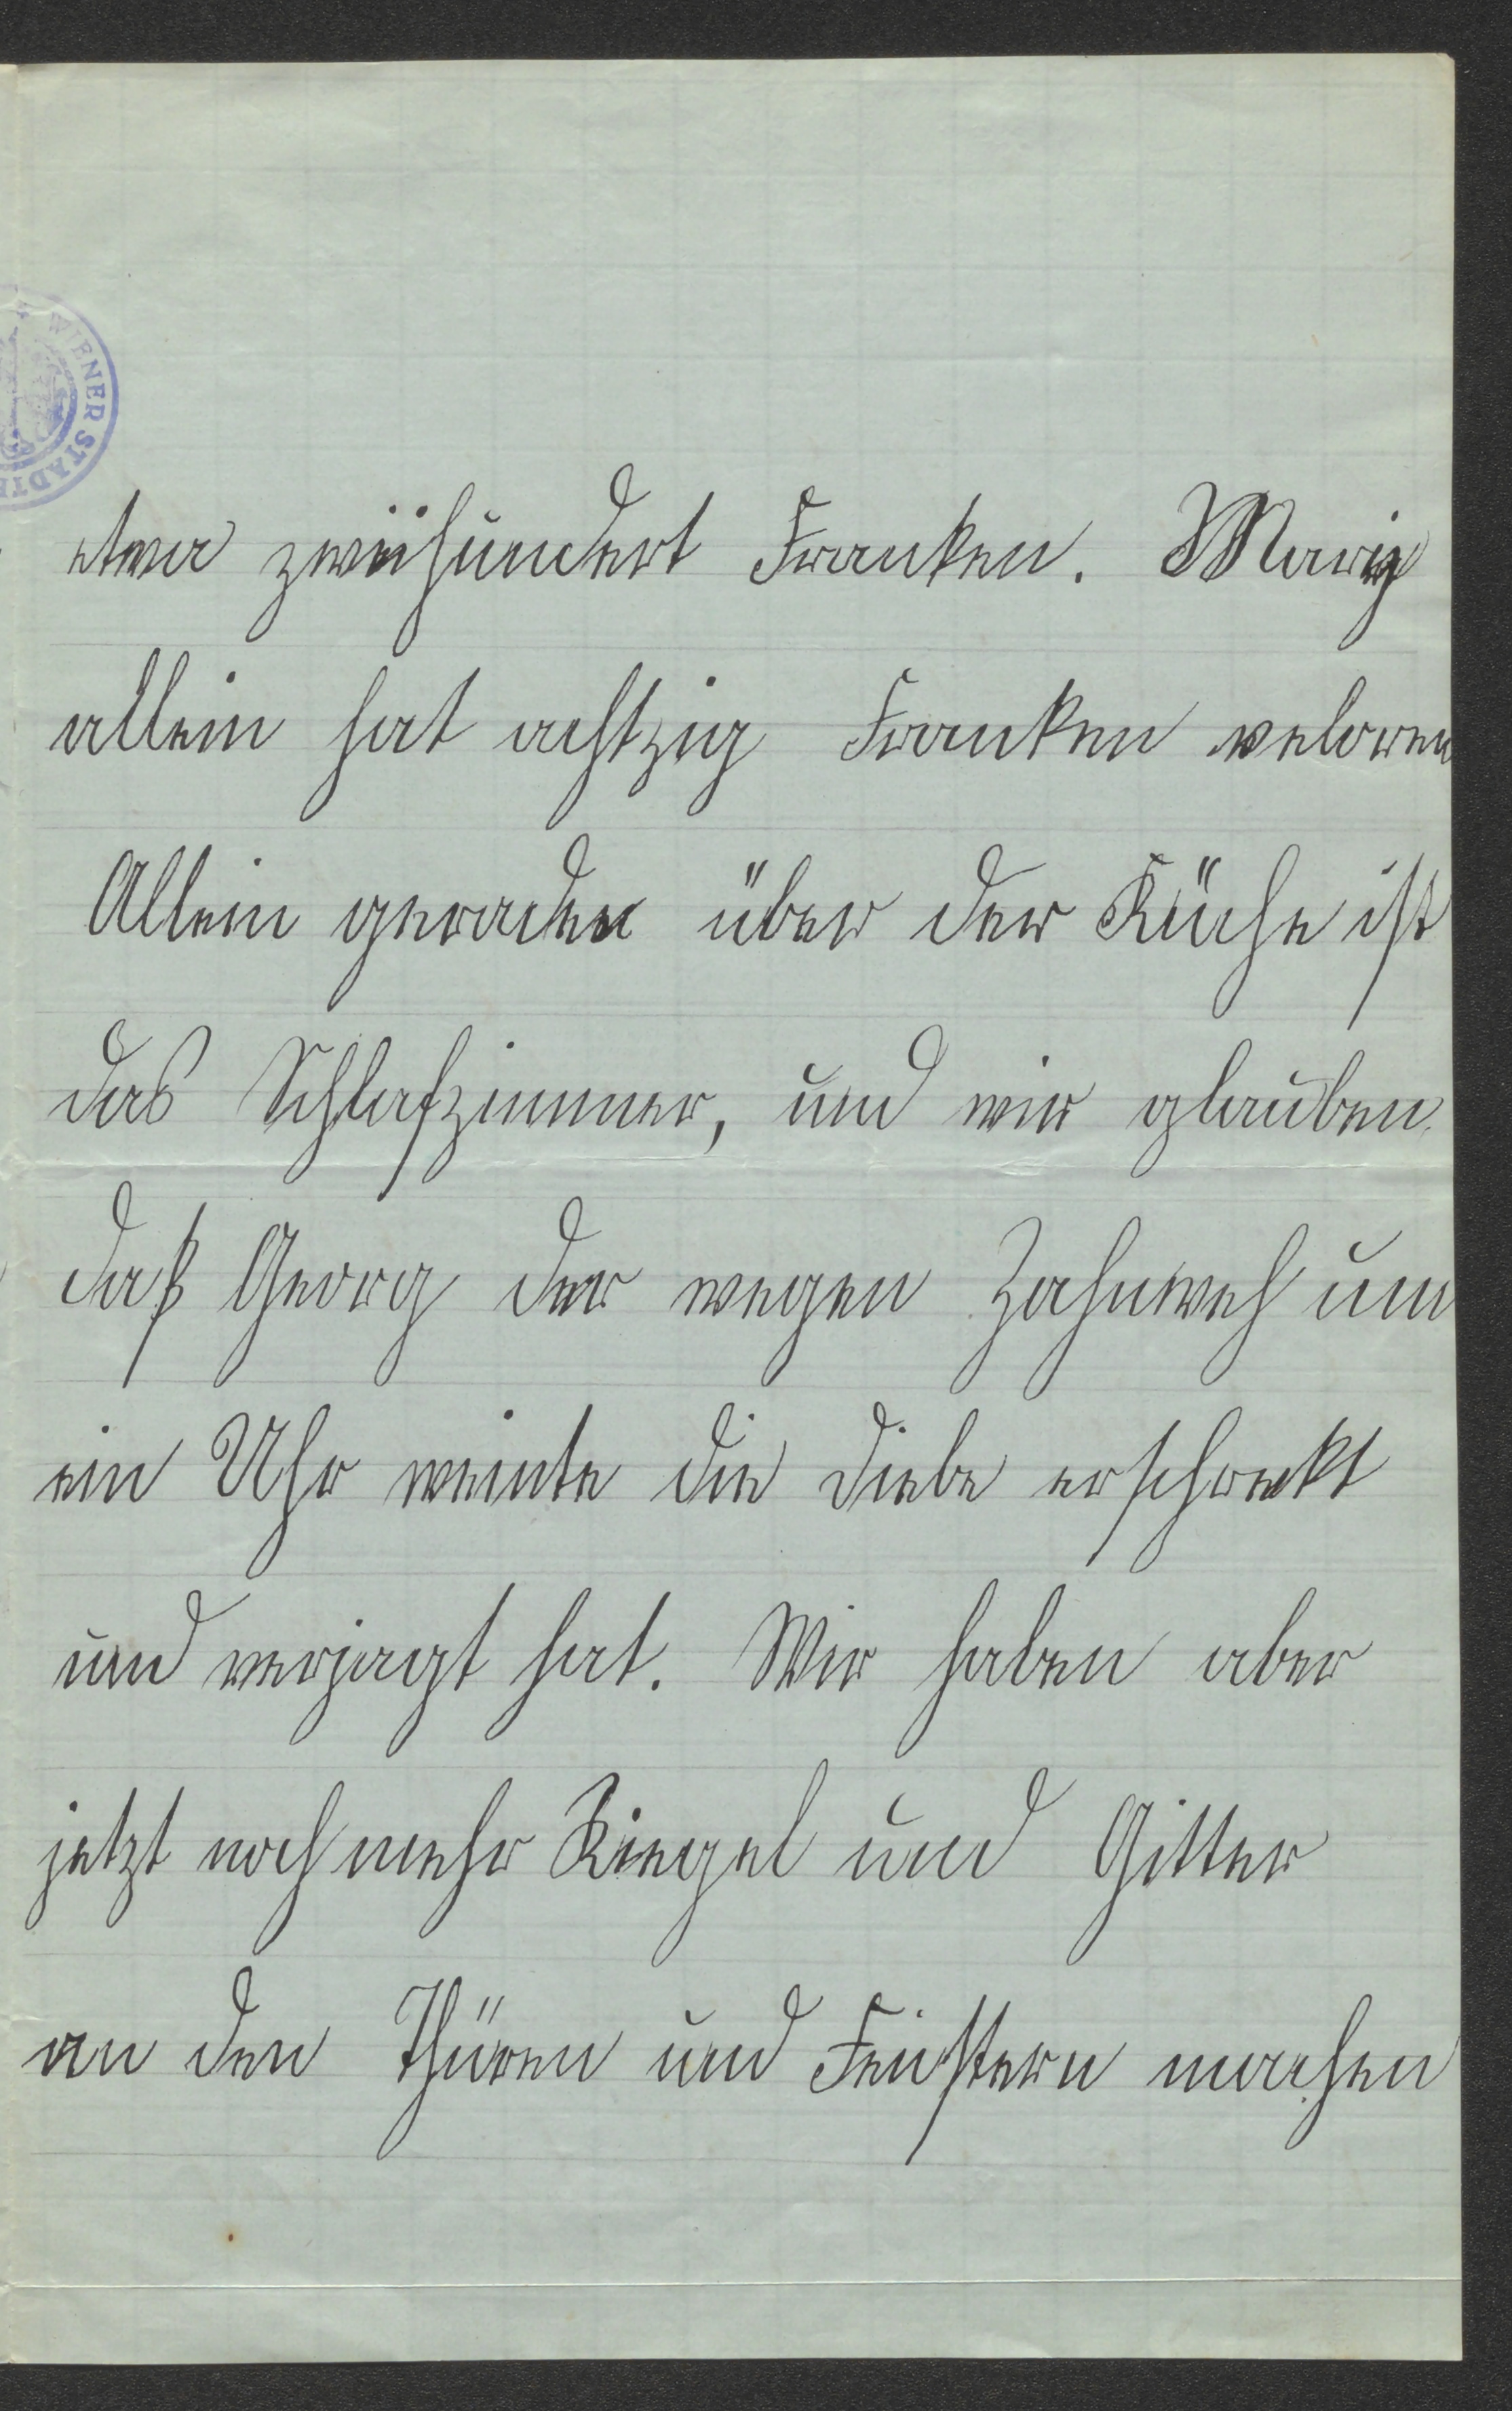 WIENER STADTB
etwa zweihundert Franken. Mariy
allein hat achtzig Franken veloren
Allein gerade über der Küche ist
das Schlafzimmer, und wir glauben
daß Georg der wegen Zahnweh um
ein Uhr weinte die Diebe erschrekt
und verjagt hat. Wir haben aber
jetzt noch mehr Riegel und Gitter
an den Thüren und Fenstern machen